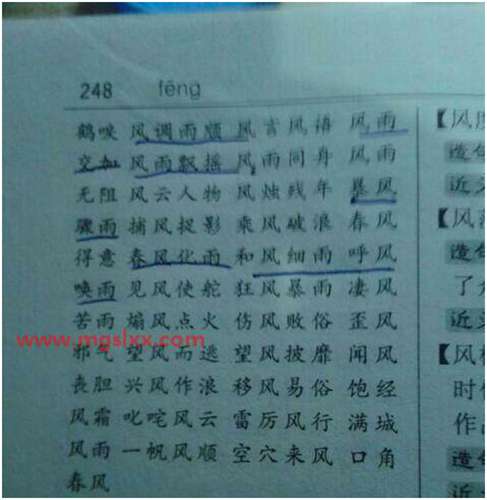 248 fēng
鹤唳 风调雨顺 风言风语 风雨
交加 风雨飘摇 风雨同舟 风雨
无阻 风云人物 风烛残年 暴风
骤雨 捕风捉影 乘风破浪 春风
得意 春风化雨 和风细雨 呼风
唤雨 见风使舵 狂风暴雨 凄风
苦雨 煽风点火 伤风败俗 歪风
邪气 望风而逃 望风披靡 闻风
丧胆 兴风作浪 移风易俗 饱经
风霜 叱咤风云 雷厉风行 满城
风雨 一帆风顺 空穴来风 口角
春风
www.mgslxx.com
【风
造句
近义
【风
造句
了
近义
【风
时
作
造句
近